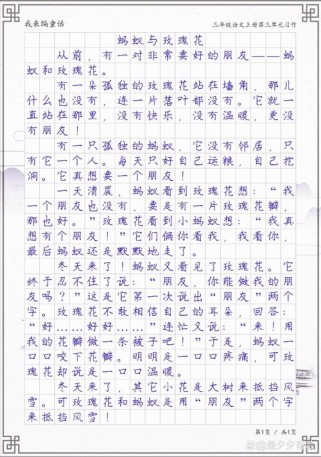 我来编童话
三年级语文上册第三单元习作
蚂蚁与玫瑰花
从前，有一对非常要好的朋友——蚂
蚁和玫瑰花。
有一朵孤独的玫瑰花站在墙角，那儿
什么也没有，连一片落叶都没有。它就一
直站在那里，没有快乐，没有温暖，更没
有朋友！
有一只孤独的蚂蚁，它没有邻居，只
有它一个人。每天只好自己运粮，自己挖
洞。它真想要一个朋友！
一天清晨，蚂蚁看到玫瑰花想：“我
一个朋友也没有，要是有一片玫瑰花瓣，
那也好。”玫瑰花看到小蚂蚁想：“我真
想有个朋友！”它们俩你看我，我看你，
最后蚂蚁还是默默地走了。
冬天来了！蚂蚁又看见了玫瑰花。它
终于忍不住了说：“朋友，你能做我的朋
友吗？”这是它第一次说出“朋友”两个
字。玫瑰花不敢相信自己的耳朵，回答：
“好……好好……”连忙又说：“来！用
我的花瓣做一条被子吧！”于是，蚂蚁一
口口咬下花瓣。明明是一口口疼痛，可玫
瑰花却说是一口口温暖。
冬天来了，其它小花是大树来抵挡风
雪。可玫瑰花和蚂蚁是用“朋友”两个字
来抵挡风雪！
第1页 / 共1页